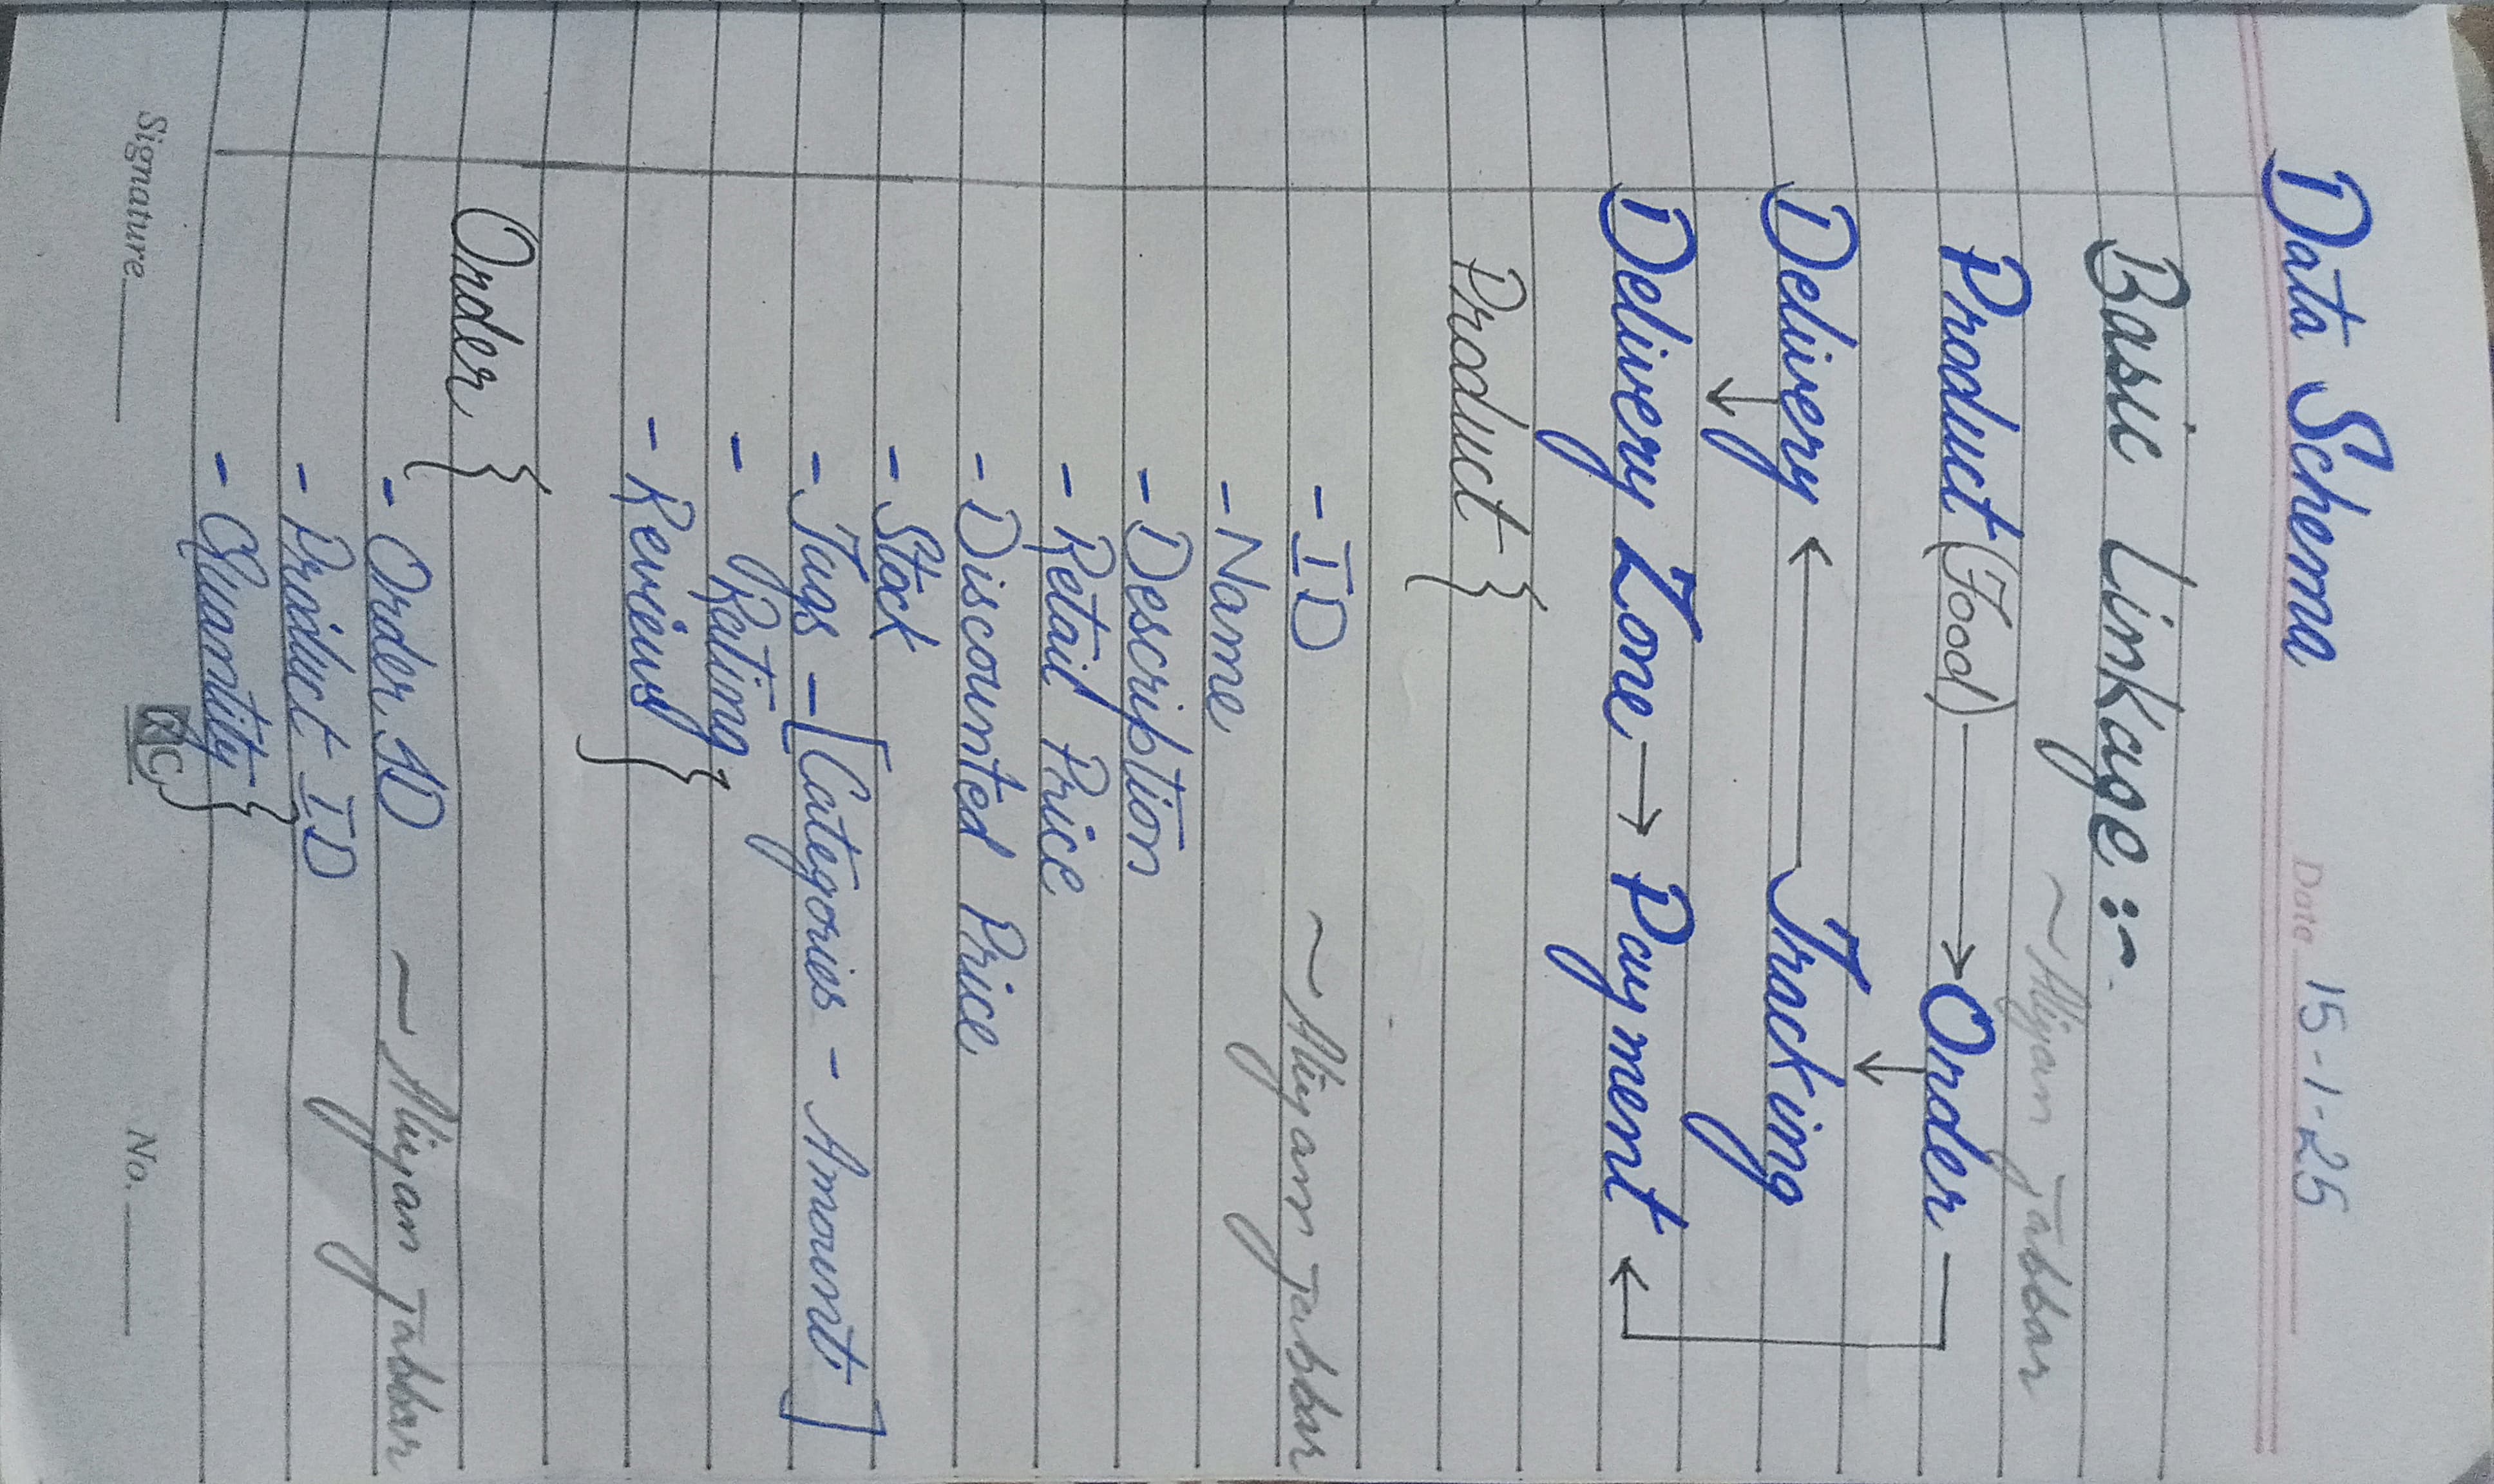 Data Schema Date 15-1-25
Basic Linkage :-
~ Aliyan Jabbar
Product (Food) → Order
Delivery ← Tracking
Delivery Zone → Payment
Product {
- ID ~ Aliyan Jabbar
- Name
- Description
- Retail Price
- Discounted Price
- Stock
- Tags - [Categories - Amount]
- Rating
- Reviews }
Order {
- Order ID ~ Aliyan Jabbar
- Product ID
- Quantity }
Signature No.